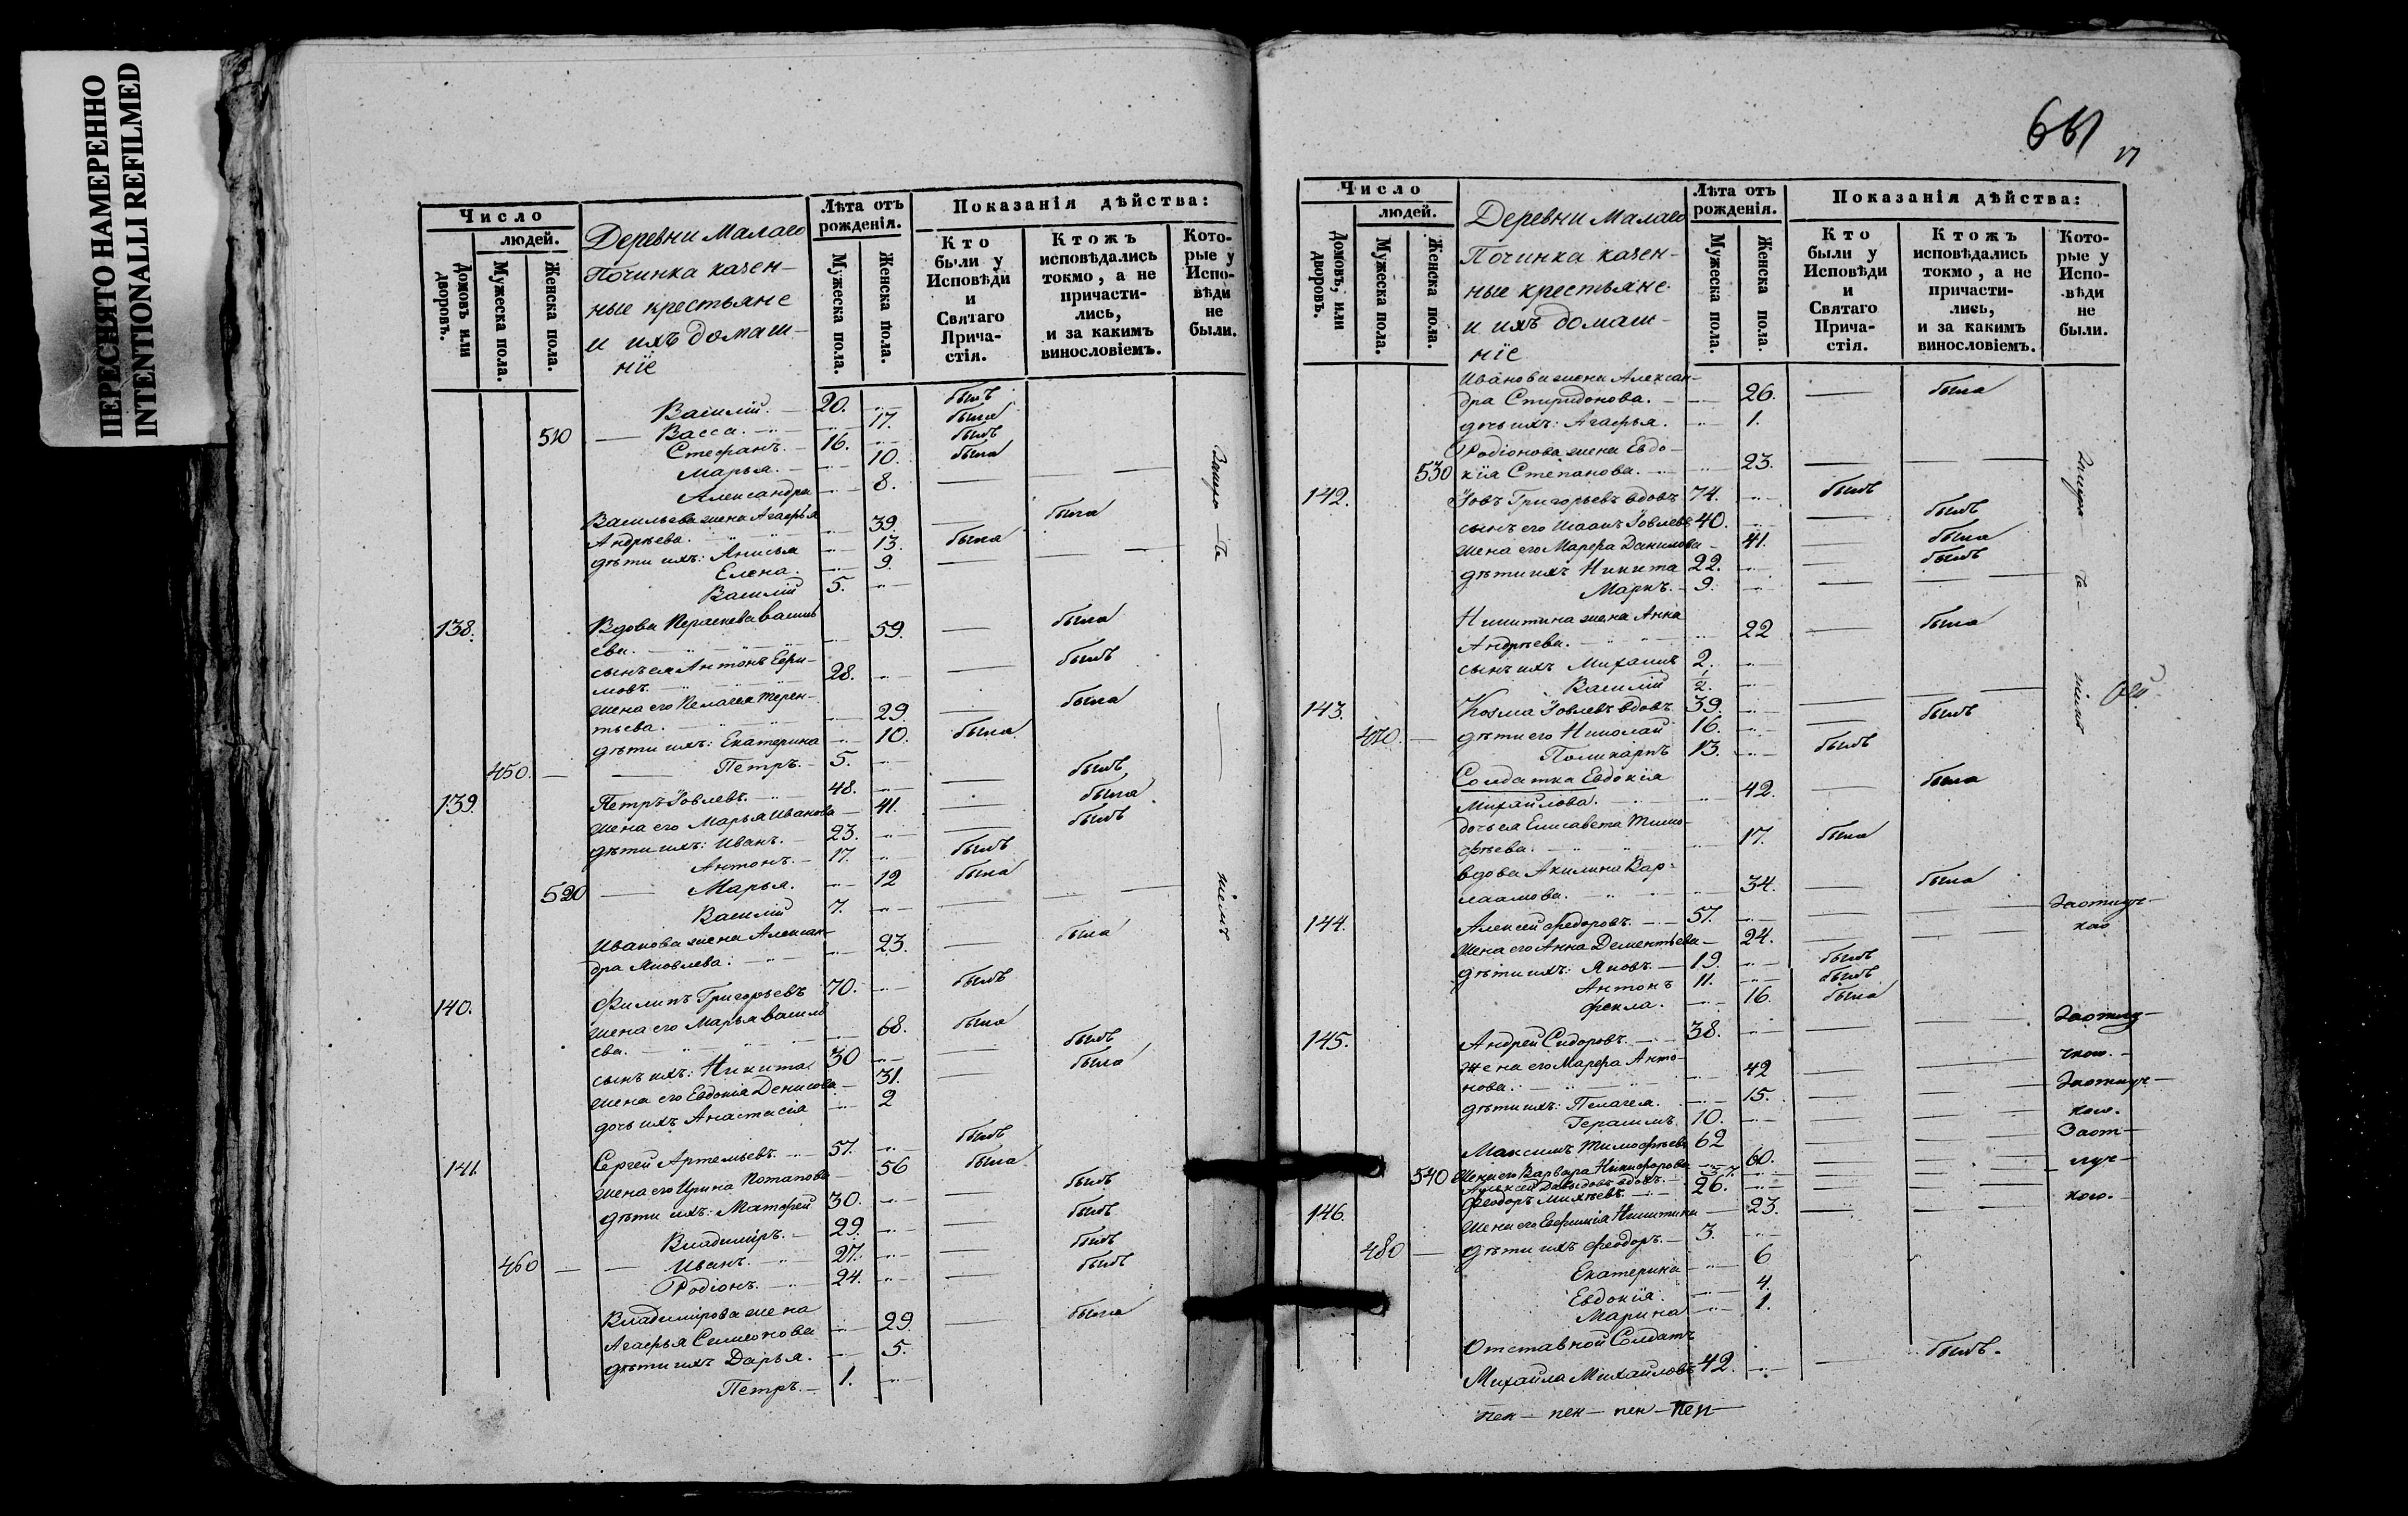 ПЕРЕСНЯТО НАМЕРЕННО
INTENTIONALLI REFILMED
Число
людей.
Домовъ или дворовъ.
Мужеска пола.
Женска пола.
Деревни Малаго
Починка казен-
ные крестьяне
и ихъ домаш-
ніе
Лѣта отъ рожденія.
Мужеска пола.
Женска пола.
Показанія дѣйства:
Кто были у Исповѣди и Святаго Прича-стія.
Ктожъ исповѣдались токмо, а не причасти-лись, и за какимъ винословіемъ.
Кото-рые у Испо-вѣди не были.
Василій. 20. былъ
510 Васса. 17. была
Стефанъ. 16. былъ
Марья. 10. была
Александра 8.
Васильева жена Агафья
Андреева. 39. была
дѣти ихъ: Анисья 13. была
Елена. 9.
Василій 5.
138. Вдова Параскева Василь
ева. 59. была
сынъ ея Антонъ Ефи-
мовъ. 28. былъ
жена его Пелагея Терен-
тьева. 29. была
дѣти ихъ: Екатерина 10. была
450. Петръ. 5.
139. Петръ Іовлевъ. 48. былъ
жена его Марья Иванова 41. была
дѣти ихъ: Иванъ. 23. былъ
Антонъ. 17. былъ
520 Марья. 12 была
Василій 7.
Иванова жена Алексан-
дра Яковлева. 23. была
140. Филипъ Григорьевъ 70. былъ
жена его Марья Василь
ева. 68. была
сынъ ихъ: Никита 30 былъ
жена его Евдокія Денисова 31. была
дочь ихъ Анастасія 2
141. Сергей Артемьевъ. 57. былъ
жена его Ирина Потапова 56 была
дѣти ихъ: Матфей 30. былъ
Владиміръ. 29. былъ
460 Иванъ. 27. былъ
Родіонъ. 24. былъ
Владимірова жена
Агафья Симеонова 29. была
дѣти ихъ Дарья. 5.
Петръ. 1.
17
Число
людей.
Домовъ, или дворовъ.
Мужеска пола.
Женска пола.
Деревни Малаго
Починка казен-
ные крестьяне
и ихъ домаш-
ніе
Лѣта отъ рожденія.
Мужеска пола.
Женска пола.
Показанія дѣйства:
Кто были у Исповѣди и Святаго Прича-стія.
Ктожъ исповѣдались токмо, а не причасти-лись, и за какимъ винословіемъ.
Кото-рые у Испо-вѣди не были.
Иванова жена Алексан-
дра Спиридонова. 26. была
дочь ихъ: Агафья. 1.
Родіонова жена Евдо-
530 кія Степанова. 23.
142. Іовъ Григорьевъ вдовъ 74. былъ
сынъ его Исаакъ Іовлевъ 40. былъ
жена его Марфа Данилова 41. была
дѣти ихъ Никита 22. былъ
Маркъ. 9.
Никитина жена Анна
Андреева. 22 была
сынъ ихъ Михаилъ 2.
Василій 1/2.
143. Козма Іовлевъ вдовъ. 39.
470. дѣти его Николай 16. былъ
Поликарпъ 13. былъ
Солдатка Евдокія
Михайлова. 42. была
дочь ея Елисавета Тимо-
фѣева. 17. была
вдова Акилина Вар-
лаамова. 34. была
144. Алексей Федоровъ. 57. За отлуч-
жена его Анна Дементьева 24. кою
дѣти ихъ: Яковъ. 19. былъ
Антонъ 11. былъ
Фекла. 16. была
145. Андрей Сидоровъ. 38. За отлу-
жена его Марфа Анто-
нова. 42 чкою.
дѣти ихъ: Пелагея. 15. За отлуч-
Герасимъ 10. кою.
Максимъ Тимофѣевъ 62 За от-
540 жена его Варвара Никифорова 60. луч-
Алексей Давыдовъ вдовъ. 57.
146. Феодоръ Михѣевъ. 26. кою.
жена его Евфимія Никитина 23.
480 дѣти ихъ Феодоръ. 3.
Екатерина 6
Евдокія. 4.
Марина 1.
Отставной Солдатъ
Михайла Михайловъ 42. былъ.